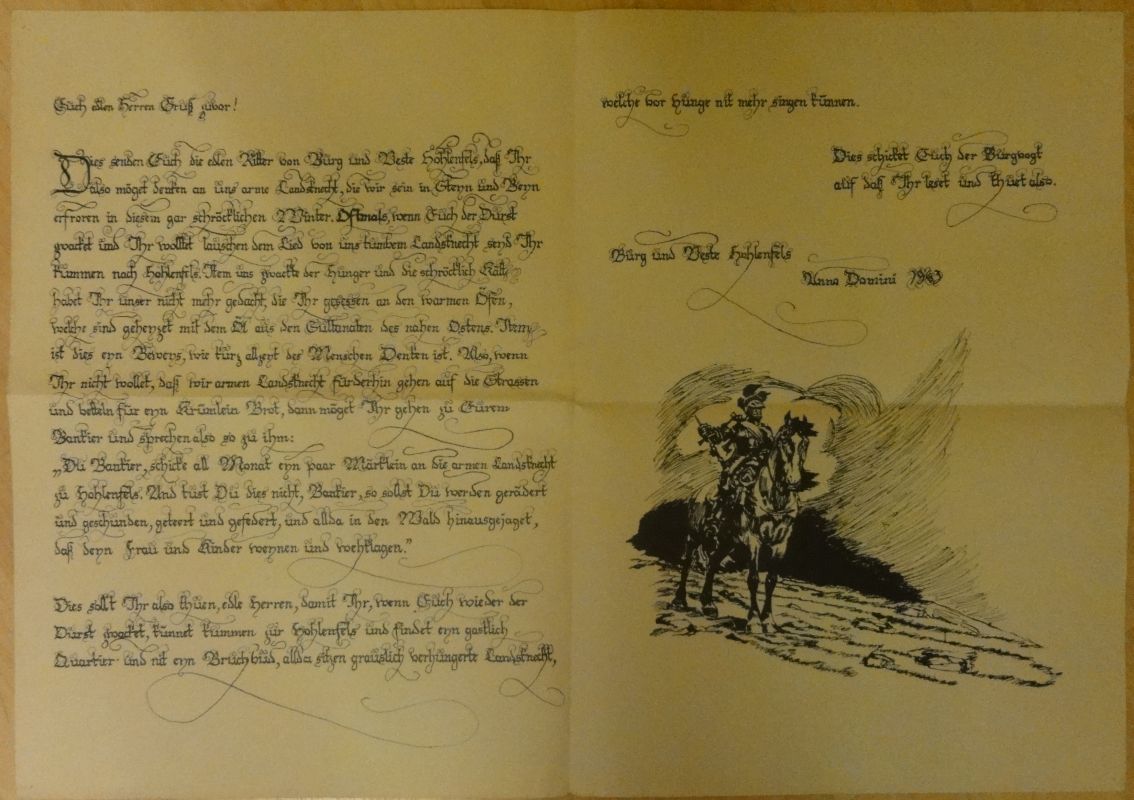 Euch edlen Herren Gruß zuvor!
Dies senden Euch die edlen Ritter von Burg und Veste Hohlenfels, daß Ihr
also möget denken an uns arme Landsknecht, die wir sein in Steyn und Beyn
erfroren in diesem gar schröcklichen Winter. Oftmals, wenn Euch der Durst
zwacket und Ihr wolltet lauschen dem Lied von uns tumben Landsknecht seyd Ihr
kummen nach Hohlenfels. Item uns zwackte der Hunger und die schröcklich Kälte
habet Ihr unser nicht mehr gedacht, die Ihr gesessen an den warmen Öfen,
welche sind geheyzet mit dem Öl aus den Sultanaten des nahen Ostens. Item
ist dies eyn Beweys, wie kurz allzeyt des Menschen Denken ist. Also, wenn
Ihr nicht wollet, daß wir armen Landsknecht fürderhin gehen auf die Strassen
und betteln für eyn Krümlein Brot, dann möget Ihr gehen zu Eurem
Bankier und sprechen also so zu ihm:
„Du Bankier, schicke all Monat eyn paar Märklein an die armen Landsknecht
zu Hohlenfels. Und tust Du dies nicht, Bankier, so sollst Du werden gerädert
und geschunden, geteert und gefedert, und allda in den Wald hinausgejaget,
daß deyn Frau und Kinder weynen und wehklagen."
Dies sollt Ihr also thuen, edle Herren, damit Ihr, wenn Euch wieder der
Durst zwacket, kunnet kummen zur Hohlenfels und findet eyn gastlich
Quartier und nit eyn Bruchbud, allda sitzen grauslich verhungerte Landsknecht,
welche vor Hunge nit mehr singen kunnen.
Dies schicket Euch der Burgvogt
auf daß Ihr leset und thuet also.
Burg und Veste Hohlenfels
Anno Domini 1963